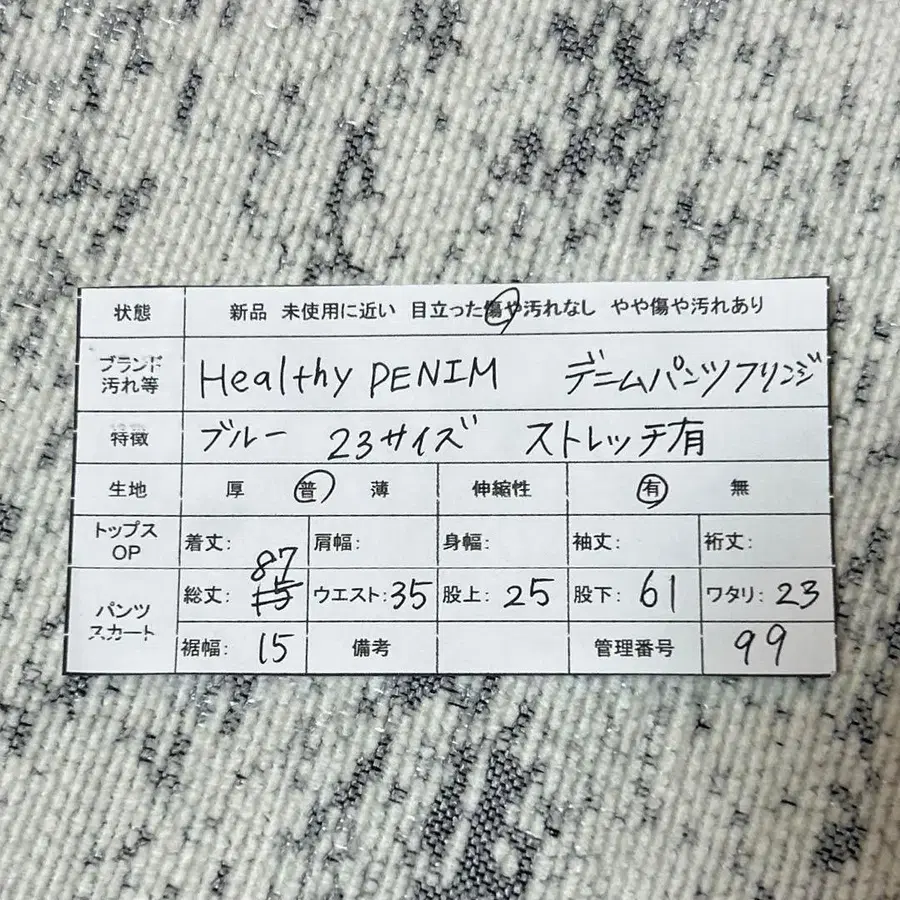 状態 新品 未使用に近い 目立った傷や汚れなし やや傷や汚れあり
ブランド
汚れ等 Healthy DENIM デニムパンツフリンジ
特徴 ブルー 23サイズ ストレッチ有
生地 厚 普 薄 伸縮性 有 無
トップス
OP 着丈: 肩幅: 身幅: 袖丈: 裄丈:
87
パンツ
スカート 総丈: ウエスト:35 股上: 25 股下: 61 ワタリ: 23
裾幅: 15 備考 管理番号 99